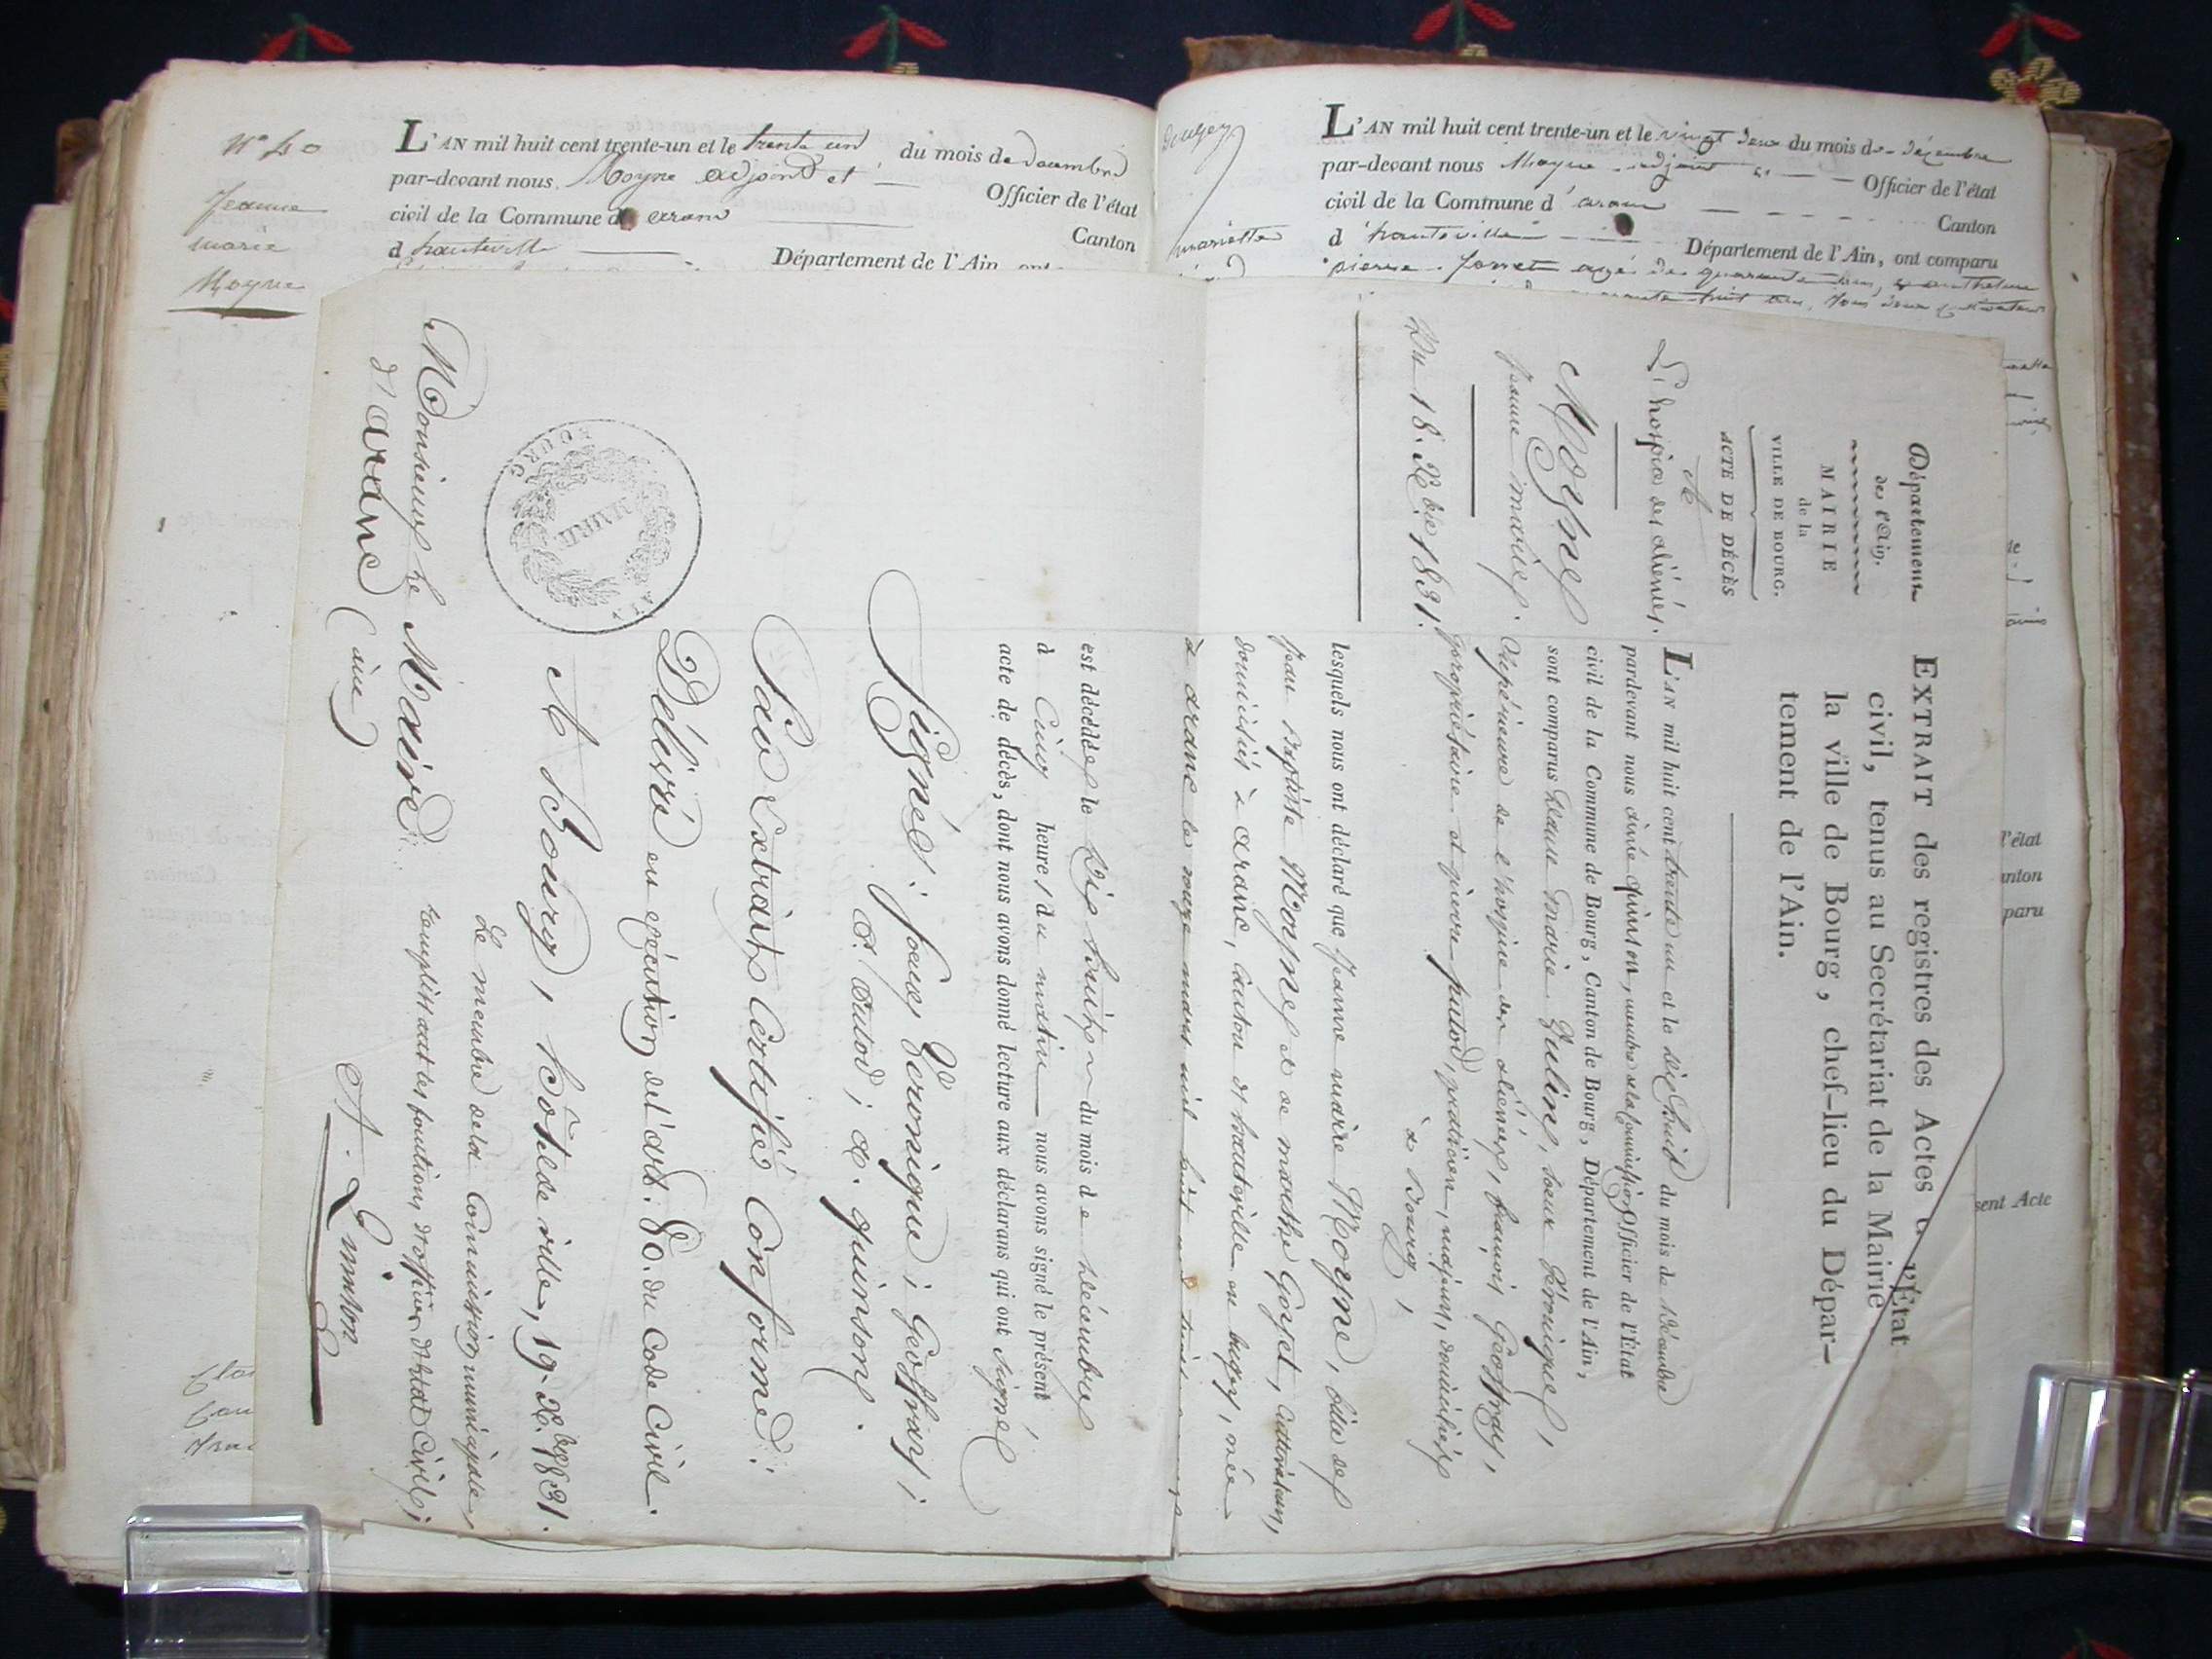 N° 40
Jeanne
marie
Moyne
L'AN mil huit cent trente-un et le trente un du mois de decembre
par-devant nous Moyne adjoint et Officier de l'état
civil de la Commune d aranc Canton
d hauteville Département de l'Ain, ont
mariette
L'AN mil huit cent trente-un et le vingt deux du mois de décembre
par-devant nous Moyne adjoint Officier de l'état
civil de la Commune d'aranc Canton
d'hauteville Département de l'Ain, ont comparu
pierre agé de quarante ans,
huit ans, tous deux
Département
de l'Ain.
MAIRIE
de la
VILLE DE BOURG.
ACTE DE DÉCÈS
A
L'hospice des aliénées.
Moyne
jeanne marie.
Du 18. Xbre 1831.
EXTRAIT des registres des Actes l'État
civil, tenus au Secrétariat de la Mairie
la ville de Bourg, chef-lieu du Dépar-
tement de l'Ain.
L'AN mil huit cent trente un et le dix huit du mois de décembre
pardevant nous aimé quinson, membre de la Commission Officier de l'État
civil de la Commune de Bourg, Canton de Bourg, Département de l'Ain,
sont comparus Marie, soeur Véronique,
Supérieure de l'hospice des aliénées, françois Geoffray,
propriétaire et pierre, praticien, majeurs, domiciliés
à Bourg,
lesquels nous ont déclaré que Jeanne marie Moyne, fille de
jean Baptiste Moyne et de marthe Goyet, cultivateurs,
domiciliés à aranc, Canton d'hauteville en bugey, née
à aranc le mars mil huit cent
est décédée le dix huit du mois de décembre
à Cinq heures du matin nous avons signé le présent
acte de décès, dont nous avons donné lecture aux déclarans qui ont signé
Signé: soeur Véronique; Geoffray;
quinson.
Pour Extrait Certifié Conforme:
Délivré en exécution de l'art. 80. du Code Civil.
A Bourg, hôtel de ville, 19. Xbre 1831.
Le membre de la Commission municipale,
remplissant les fonctions d'officier d'état Civil;
A. Quinson
MAIRIE
BOURG
AIN
Monsieur le Maire
d'aranc (ain)
l'état
anton
paru
sent Acte